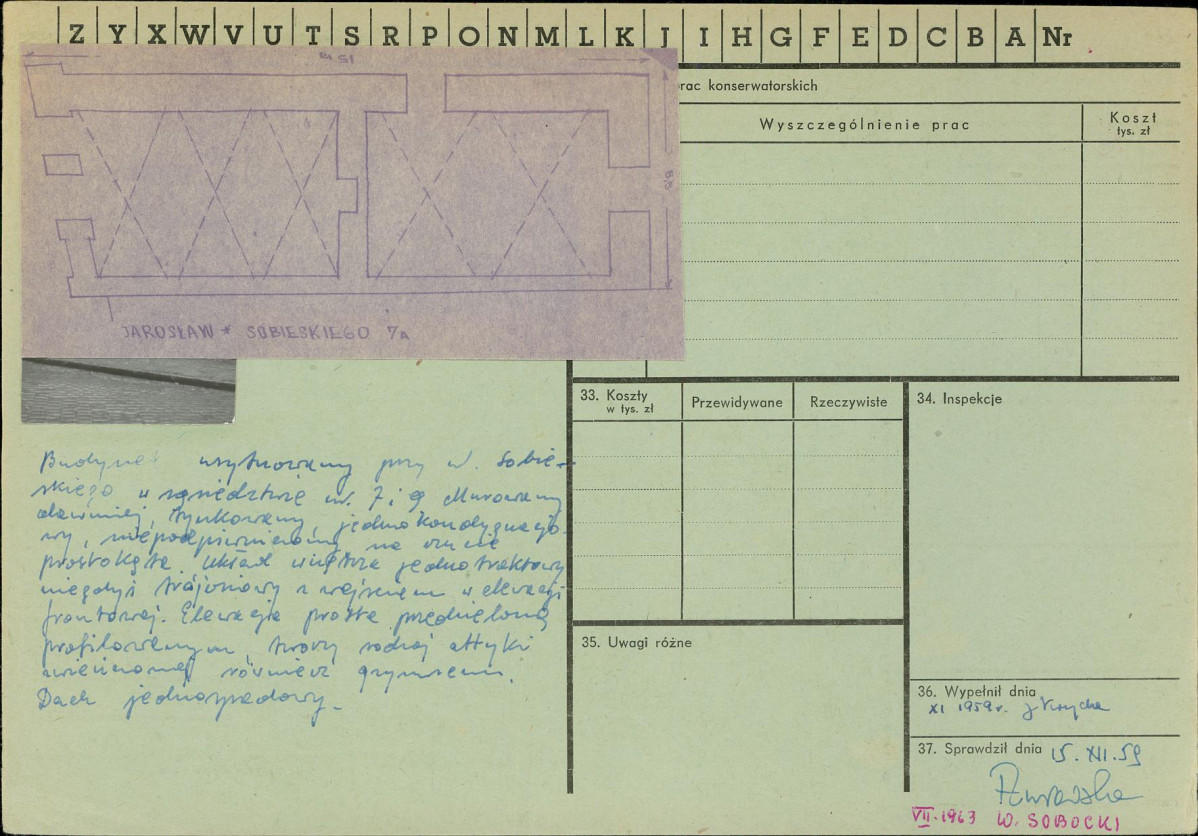 Z Y X W V U T S R P O N M L K J I H G F E D C B A Nr
15 m
prac konserwatorskich
Wyszczególnienie prac
Koszt
tys. zł
JAROSŁAW * SOBIESKIEGO 7A
33. Koszty
w tys. zł
Przewidywane
Rzeczywiste
34. Inspekcje
Budynek usytuowany przy ul. Sobie-
skiego w sąsiedztwie nr. 7 i 9 Murowany
dawniej, tynkowany, jednokondygnacjo-
wy, niepodpiwniczony na rzucie
prostokąta. Układ wnętrza jednotraktowy
niegdyś trójosiowy z wejściem w elewacji
frontowej. Elewacja prosta przedzielona
profilowanym, tworzy rodzaj attyki
zwieńczonej również gzymsem.
Dach jednospadowy.
35. Uwagi różne
36. Wypełnił dnia
XI 1959 r.
37. Sprawdził dnia 15. XII. 59
VII. 1963 W. SOBOCKI